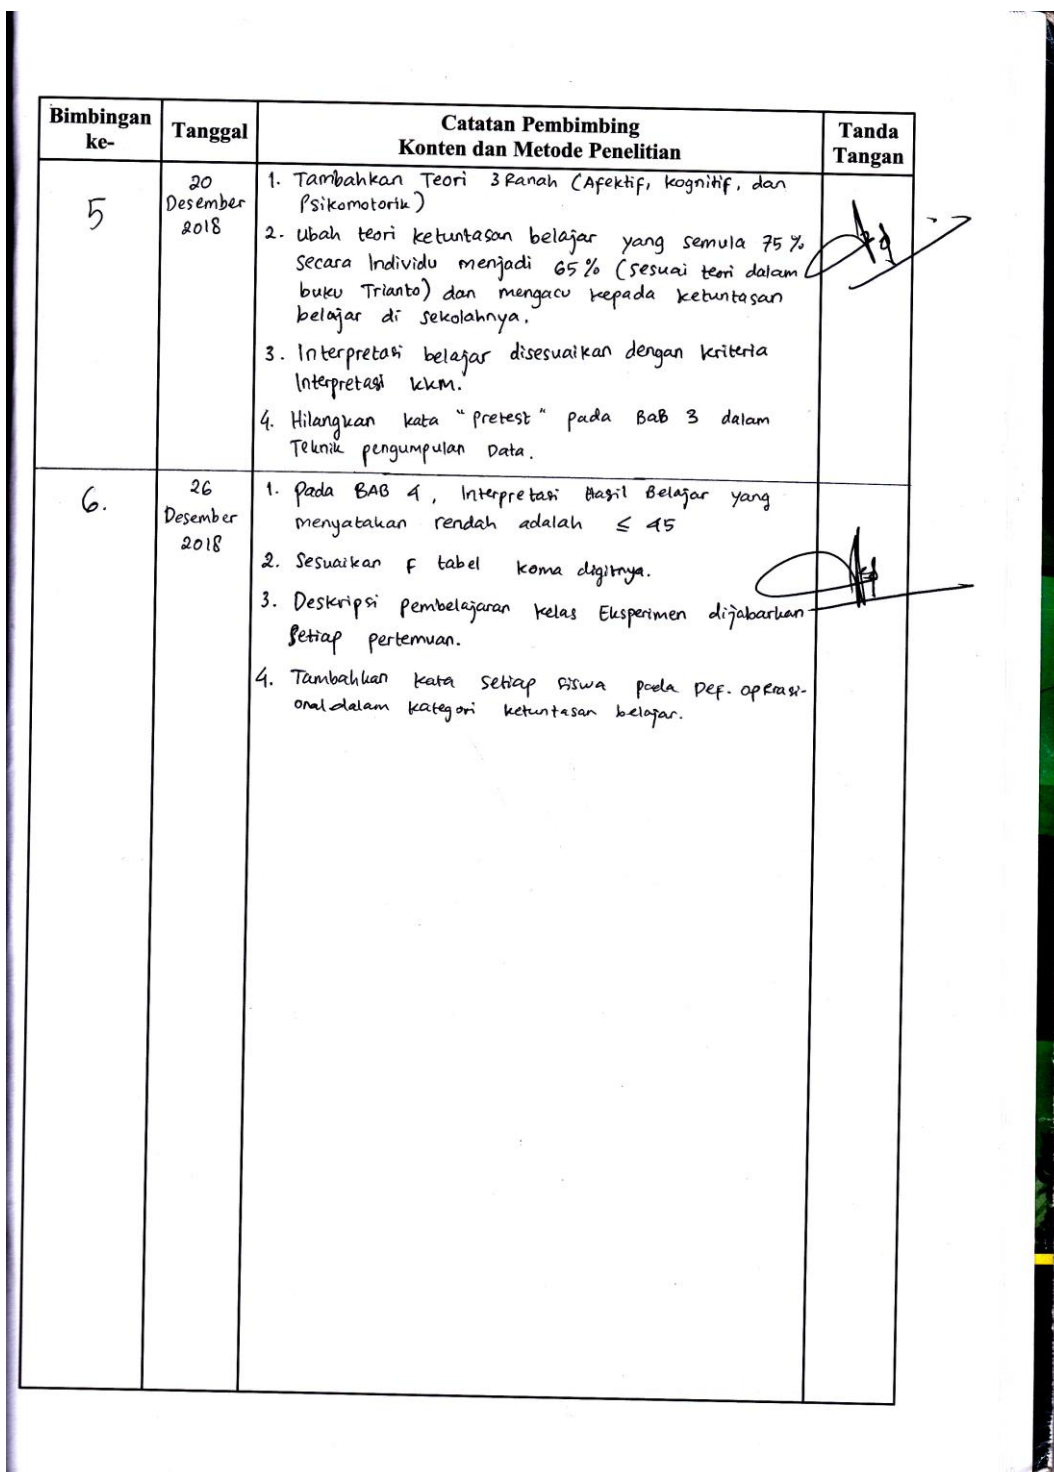 Bimbingan ke-
Tanggal
Catatan Pembimbing
Konten dan Metode Penelitian
Tanda Tangan
5
20 Desember 2018
1. Tambahkan Teori 3 Ranah (Afektif, kognitif, dan
Psikomotorik)
2. Ubah teori ketuntasan belajar yang semula 75 %
Secara Individu menjadi 65 % (sesuai teori dalam
buku Trianto) dan mengacu kepada ketuntasan
belajar di sekolahnya.
3. Interpretasi belajar disesuaikan dengan kriteria
Interpretasi KKM.
4. Hilangkan kata "pretest" pada BaB 3 dalam
Teknik pengumpulan Data.
6.
26 Desember 2018
1. Pada BAB 4, Interpretasi Hasil Belajar yang
menyatakan rendah adalah ≤ 45
2. Sesuaikan F tabel koma digitnya.
3. Deskripsi pembelajaran kelas Eksperimen dijabarkan
Setiap pertemuan.
4. Tambahkan kata setiap siswa pada Def. operasi-
onal dalam kategori ketuntasan belajar.